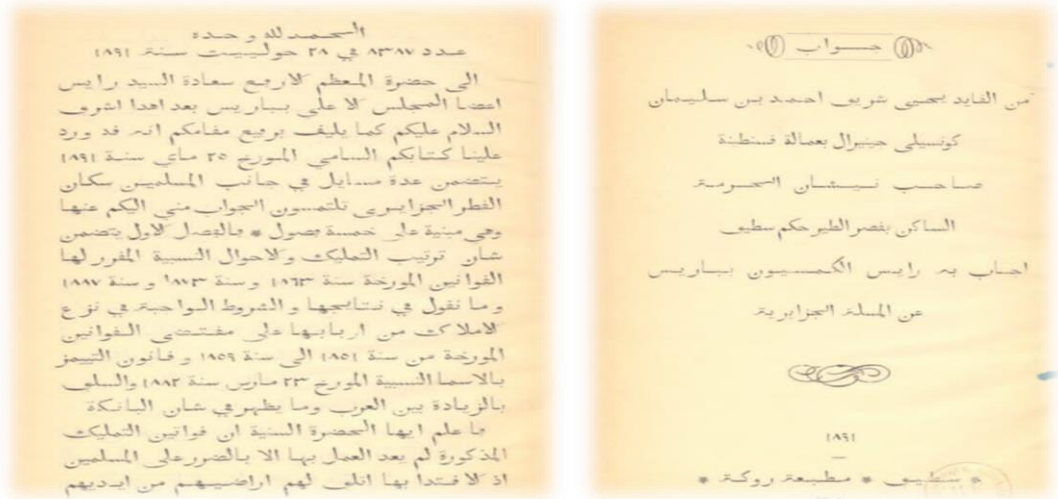 جواب
من القايد يحيى شريف احمد بن سليمان
كونسيلى جينيرال بعمالة قسنطينة
صاحب نيشان الحرمة
الساكن بقصر الطير حكم سطيف
اجاب به رايس الكمسيون بباريس
عن المسلة الجزايرية
١٨٩١
* سطيف * مطبعة روكة *
الحمد لله وحده
عدد ٨٣٨٧ في ٢٨ جولييت سنة ١٨٩١
الى حضرة المعظم الارفع سعادة السيد رايس
اعضا المجلس الاعلى بباريس بعد اهدا اشرف
السلام عليكم كما يليق برفيع مقامكم انه قد ورد
علينا كتابكم السامي المورخ ٢٥ ماي سنة ١٨٩١
يتضمن عدة مسايل في جانب المسلمين سكان
القطر الجزايرى تلتمسون الجواب مني اليكم عنها
وهى مبنية على خمسة فصول * فالفصل الاول يتضمن
شان ترتيب التمليك والاحوال النسبية المقرر لها
القوانين المورخة سنة ١٨٦٣ وسنة ١٨٧٣ وسنة ١٨٨٧
وما نقول في نتايجها والشروط الواجبة في نزع
الاملاك من اربابها على مقتضى القوانين
المورخة من سنة ١٨٥١ الى سنة ١٨٥٩ وقانون التمييز
بالاسما النسبية المورخ ٢٣ مارس سنة ١٨٨٢ والسلف
بالزيادة بين العرب وما يظهر في شان البانكة
فاعلم ايها الحضرة السنية ان قوانين التمليك
المذكورة لم يعد العمل بها الا بالضرر على المسلمين
اذ الافتدا بها اتلف لهم اراضيهم من ايديهم